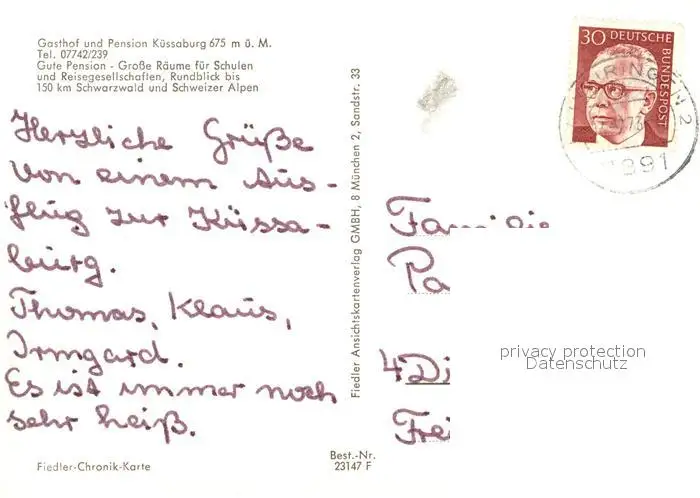 Gasthof und Pension Küssaburg 675 m ü. M.
Tel. 07742/239
Gute Pension - Große Räume für Schulen
und Reisegesellschaften, Rundblick bis
150 km Schwarzwald und Schweizer Alpen
Herzliche Grüße
von einem Aus-
flug zur Küssa-
burg.
Thomas, Klaus,
Irmgard.
Es ist immer noch
sehr heiß.
Fiedler-Chronik-Karte
Best.-Nr.
23147 F
Fiedler Ansichtskartenverlag GMBH, 8 München 2, Sandstr. 33
30 DEUTSCHE
BUNDESPOST
7891
Familie
Pa
4 Di
Frei
privacy protection
Datenschutz